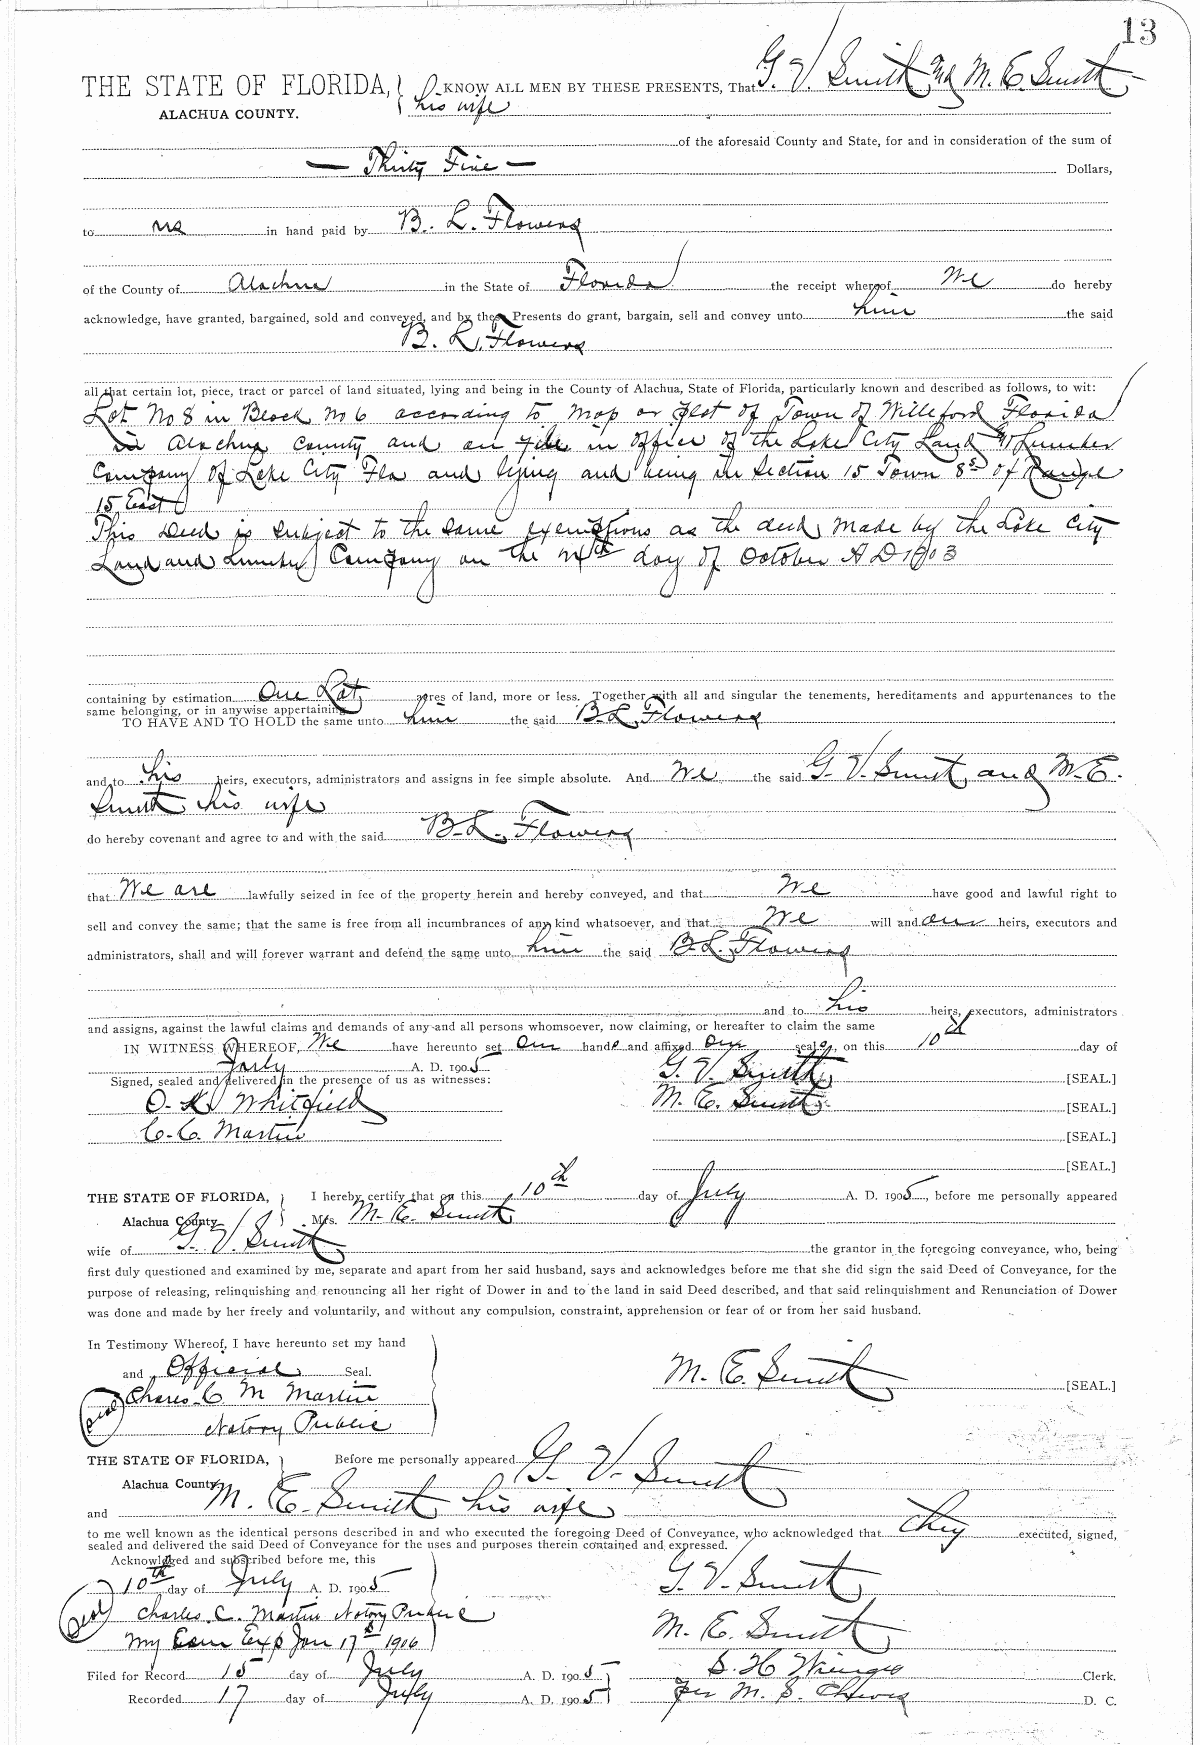 13
THE STATE OF FLORIDA, KNOW ALL MEN BY THESE PRESENTS, That G. V. Smith and M. E. Smith
ALACHUA COUNTY. his wife
of the aforesaid County and State, for and in consideration of the sum of
— Thirty Five — Dollars,
to us in hand paid by B. L. Flowers
of the County of Alachua in the State of Florida the receipt whereof We do hereby
acknowledge, have granted, bargained, sold and conveyed, and by these Presents do grant, bargain, sell and convey unto him the said
B. L. Flowers
all that certain lot, piece, tract or parcel of land situated, lying and being in the County of Alachua, State of Florida, particularly known and described as follows, to wit:
Lot No 8 in Block No 6 according to map or plot of Town of Willeford Florida
in Alachua County and on file in office of the Lake City Land & Lumber
Company of Lake City Fla and lying and being in Section 15 Town 8 S of Range
15 East
This Deed is subject to the same exemptions as the deed made by the Lake City
Land and Lumber Company on the day of October A D 1903
containing by estimation One Lot acres of land, more or less. Together with all and singular the tenements, hereditaments and appurtenances to the
same belonging, or in anywise appertaining.
TO HAVE AND TO HOLD the same unto him the said B. L. Flowers
and to his heirs, executors, administrators and assigns in fee simple absolute. And We the said G. V. Smith and M. E.
Smith his wife
do hereby covenant and agree to and with the said B. L. Flowers
that We are lawfully seized in fee of the property herein and hereby conveyed, and that We have good and lawful right to
sell and convey the same; that the same is free from all incumbrances of any kind whatsoever, and that We will and our heirs, executors and
administrators, shall and will forever warrant and defend the same unto him the said B. L. Flowers
and to his heirs, executors, administrators
and assigns, against the lawful claims and demands of any and all persons whomsoever, now claiming, or hereafter to claim the same
IN WITNESS WHEREOF, We have hereunto set our hands and affixed our seals, on this 10th day of
July A. D. 1905 G. V. Smith [SEAL.]
Signed, sealed and delivered in the presence of us as witnesses:
O. K. Whitfield M. E. Smith [SEAL.]
C. C. Martin [SEAL.]
[SEAL.]
THE STATE OF FLORIDA, I hereby certify that on this 10th day of July A. D. 1905, before me personally appeared
Alachua County Mrs. M. E. Smith
wife of G. V. Smith the grantor in the foregoing conveyance, who, being
first duly questioned and examined by me, separate and apart from her said husband, says and acknowledges before me that she did sign the said Deed of Conveyance, for the
purpose of releasing, relinquishing and renouncing all her right of Dower in and to the land in said Deed described, and that said relinquishment and Renunciation of Dower
was done and made by her freely and voluntarily, and without any compulsion, constraint, apprehension or fear of or from her said husband.
In Testimony Whereof, I have hereunto set my hand
and Official Seal. M. E. Smith [SEAL.]
Seal Chares C M Martin
Notory Public
THE STATE OF FLORIDA, Before me personally appeared G. V. Smith
Alachua County
and M. E. Smith his wife
to me well known as the identical persons described in and who executed the foregoing Deed of Conveyance, who acknowledged that they executed, signed,
sealed and delivered the said Deed of Conveyance for the uses and purposes therein contained and expressed.
Acknowledged and subscribed before me, this
10th day of July A. D. 1905 G. V. Smith
Seal Charles. C. Martin Notory Public M. E. Smith
My Com Exp Jan 17th 1906
Filed for Record 15 day of July A. D. 1905 S. H. Wienges Clerk.
Recorded 17 day of July A. D. 1905 Per M. S. Cheves D. C.